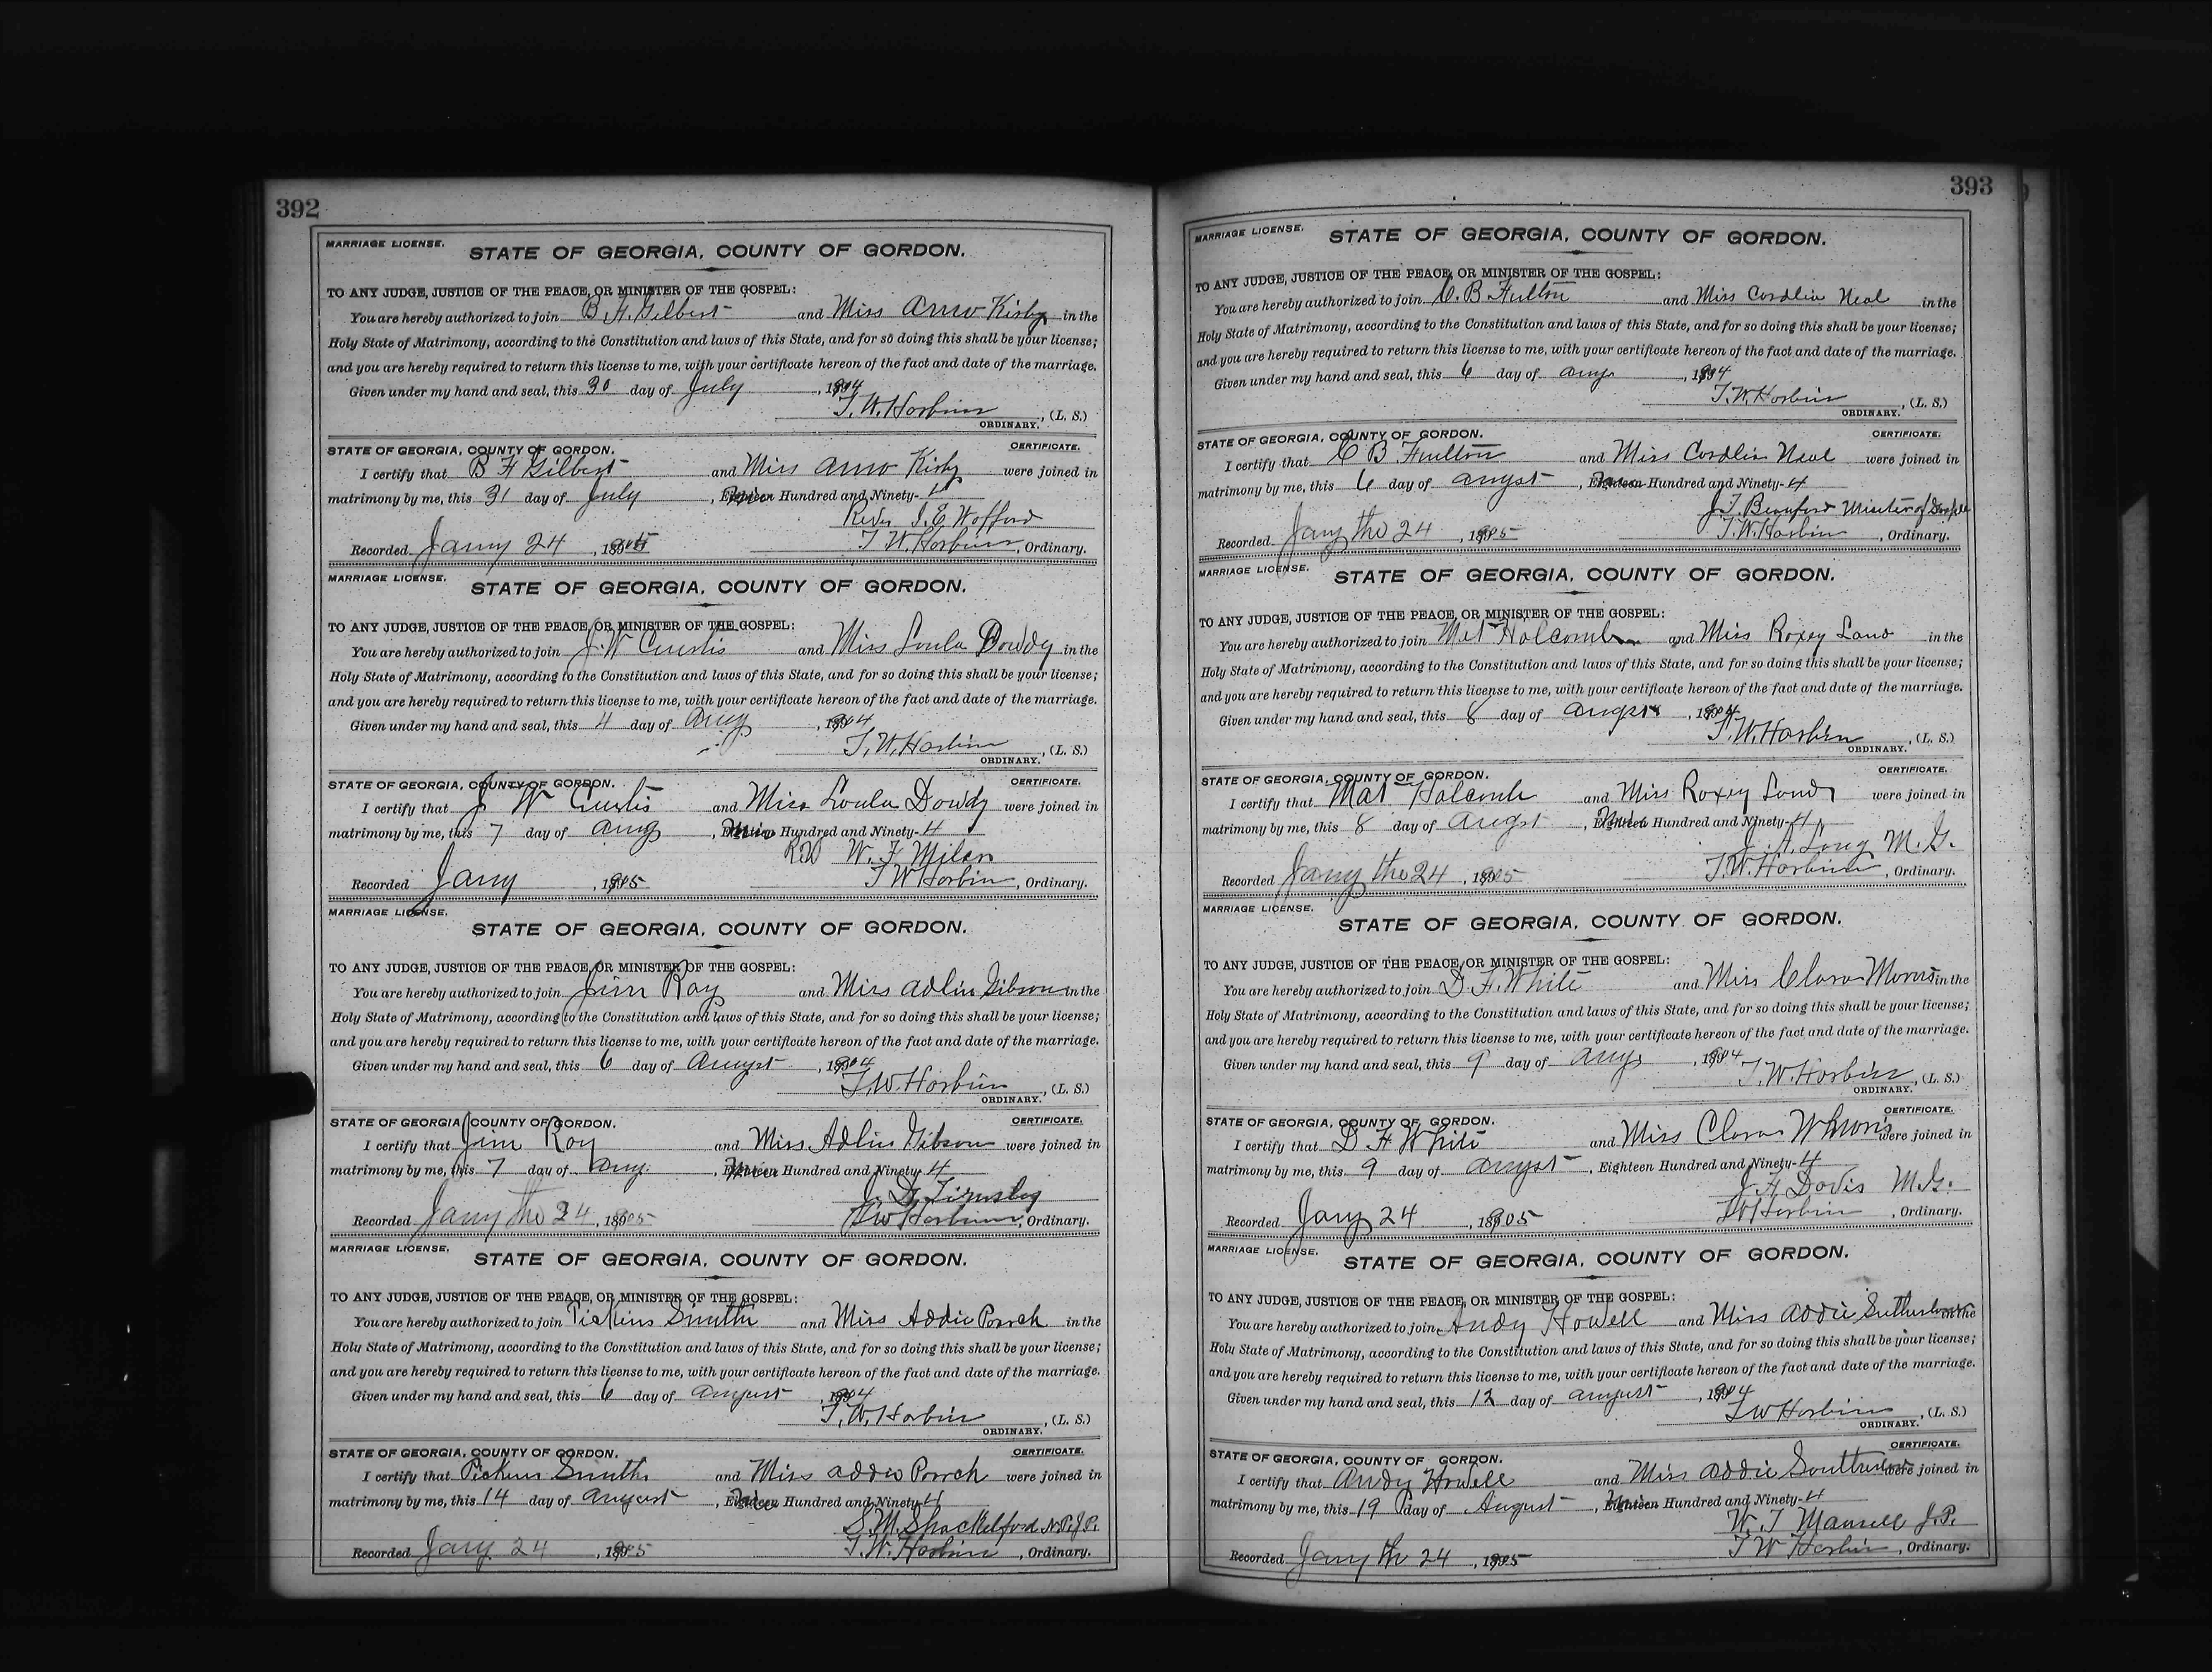 392
MARRIAGE LICENSE.
STATE OF GEORGIA, COUNTY OF GORDON.
TO ANY JUDGE, JUSTICE OF THE PEACE, OR MINISTER OF THE GOSPEL:
You are hereby authorized to join B. F. Gilbert and Miss Kirby in the
Holy State of Matrimony, according to the Constitution and laws of this State, and for so doing this shall be your license;
and you are hereby required to return this license to me, with your certificate hereon of the fact and date of the marriage.
Given under my hand and seal, this 30 day of July, 1904
T. W. Harbin, (L. S.)
ORDINARY.
STATE OF GEORGIA, COUNTY OF GORDON. CERTIFICATE.
I certify that B F Gilbert and Miss Kirby were joined in
matrimony by me, this 31 day of July, Nine Hundred and Ninety-4
Rev J. E. Wofford
Recorded Jany 24, 1905 T. W. Harbin, Ordinary.
MARRIAGE LICENSE.
STATE OF GEORGIA, COUNTY OF GORDON.
TO ANY JUDGE, JUSTICE OF THE PEACE, OR MINISTER OF THE GOSPEL:
You are hereby authorized to join J. W Curtis and Miss Loula Dowdy in the
Holy State of Matrimony, according to the Constitution and laws of this State, and for so doing this shall be your license;
and you are hereby required to return this license to me, with your certificate hereon of the fact and date of the marriage.
Given under my hand and seal, this 4 day of Aug, 1904
T. W. Harbin, (L. S.)
ORDINARY.
STATE OF GEORGIA, COUNTY OF GORDON. CERTIFICATE.
I certify that J W Curtis and Miss Loula Dowdy were joined in
matrimony by me, this 7 day of Aug, Nine Hundred and Ninety-4
Rev W. F. Milan
Recorded Jany, 1905 T W Harbin, Ordinary.
MARRIAGE LICENSE.
STATE OF GEORGIA, COUNTY OF GORDON.
TO ANY JUDGE, JUSTICE OF THE PEACE, OR MINISTER OF THE GOSPEL:
You are hereby authorized to join Jim Ray and Miss Adlin Gibson in the
Holy State of Matrimony, according to the Constitution and laws of this State, and for so doing this shall be your license;
and you are hereby required to return this license to me, with your certificate hereon of the fact and date of the marriage.
Given under my hand and seal, this 6 day of Augst, 1904
T. W. Harbin, (L. S.)
ORDINARY.
STATE OF GEORGIA, COUNTY OF GORDON. CERTIFICATE.
I certify that Jim Ray and Miss Adlin Gibson were joined in
matrimony by me, this 7 day of Aug., Nine Hundred and Ninety-4
J. D.
Recorded Jany the 24, 1905 T W Harbin, Ordinary.
MARRIAGE LICENSE.
STATE OF GEORGIA, COUNTY OF GORDON.
TO ANY JUDGE, JUSTICE OF THE PEACE, OR MINISTER OF THE GOSPEL:
You are hereby authorized to join Pickins Smith and Miss Addie Porch in the
Holy State of Matrimony, according to the Constitution and laws of this State, and for so doing this shall be your license;
and you are hereby required to return this license to me, with your certificate hereon of the fact and date of the marriage.
Given under my hand and seal, this 6 day of August, 1904
T. W. Harbin, (L. S.)
ORDINARY.
STATE OF GEORGIA, COUNTY OF GORDON. CERTIFICATE.
I certify that Pickins Smith and Miss Addie Porch were joined in
matrimony by me, this 14 day of August, Nine Hundred and Ninety-4
S. M. Shackelford N.P.J.P.
Recorded Jany 24, 1905 T. W. Harbin, Ordinary.
393
MARRIAGE LICENSE.
STATE OF GEORGIA, COUNTY OF GORDON.
TO ANY JUDGE, JUSTICE OF THE PEACE, OR MINISTER OF THE GOSPEL:
You are hereby authorized to join C. B Fulton and Miss Cordlia Neal in the
Holy State of Matrimony, according to the Constitution and laws of this State, and for so doing this shall be your license;
and you are hereby required to return this license to me, with your certificate hereon of the fact and date of the marriage.
Given under my hand and seal, this 6 day of Aug, 1904
T. W. Harbin, (L. S.)
ORDINARY.
STATE OF GEORGIA, COUNTY OF GORDON. CERTIFICATE.
I certify that C B. Fulton and Miss Cordlia Neal were joined in
matrimony by me, this 6 day of Augst, Nine Hundred and Ninety-4
J. T. Minister of Gospel
Recorded Jany the 24, 1905 T. W. Harbin, Ordinary.
MARRIAGE LICENSE.
STATE OF GEORGIA, COUNTY OF GORDON.
TO ANY JUDGE, JUSTICE OF THE PEACE, OR MINISTER OF THE GOSPEL:
You are hereby authorized to join Mat Holcomb and Miss Roxey Land in the
Holy State of Matrimony, according to the Constitution and laws of this State, and for so doing this shall be your license;
and you are hereby required to return this license to me, with your certificate hereon of the fact and date of the marriage.
Given under my hand and seal, this 8 day of Augst, 1904
T. W. Harbin, (L. S.)
ORDINARY.
STATE OF GEORGIA, COUNTY OF GORDON. CERTIFICATE.
I certify that Mat Holcomb and Miss Roxey Land were joined in
matrimony by me, this 8 day of Augst, Nine Hundred and Ninety-4
J. A. Long M. G.
Recorded Jany the 24, 1905 T. W. Harbin, Ordinary.
MARRIAGE LICENSE.
STATE OF GEORGIA, COUNTY OF GORDON.
TO ANY JUDGE, JUSTICE OF THE PEACE, OR MINISTER OF THE GOSPEL:
You are hereby authorized to join D. F. White and Miss Clara Morris in the
Holy State of Matrimony, according to the Constitution and laws of this State, and for so doing this shall be your license;
and you are hereby required to return this license to me, with your certificate hereon of the fact and date of the marriage.
Given under my hand and seal, this 9 day of Aug, 1904
T. W. Harbin, (L. S.)
ORDINARY.
STATE OF GEORGIA, COUNTY OF GORDON. CERTIFICATE.
I certify that D F White and Miss Clara were joined in
matrimony by me, this 9 day of Augst, Eighteen Hundred and Ninety-4
J. A. Davis M. G.
Recorded Jany 24, 1905 T W Harbin, Ordinary.
MARRIAGE LICENSE.
STATE OF GEORGIA, COUNTY OF GORDON.
TO ANY JUDGE, JUSTICE OF THE PEACE, OR MINISTER OF THE GOSPEL:
You are hereby authorized to join Andy Howell and Miss Addie in the
Holy State of Matrimony, according to the Constitution and laws of this State, and for so doing this shall be your license;
and you are hereby required to return this license to me, with your certificate hereon of the fact and date of the marriage.
Given under my hand and seal, this 12 day of August, 1904
T W Harbin, (L. S.)
ORDINARY.
STATE OF GEORGIA, COUNTY OF GORDON. CERTIFICATE.
I certify that Andy Howell and Miss Addie were joined in
matrimony by me, this 19 day of August, Nine Hundred and Ninety-4
W. T Mansell J.P.
Recorded Jany the 24, 1905 T W Harbin, Ordinary.